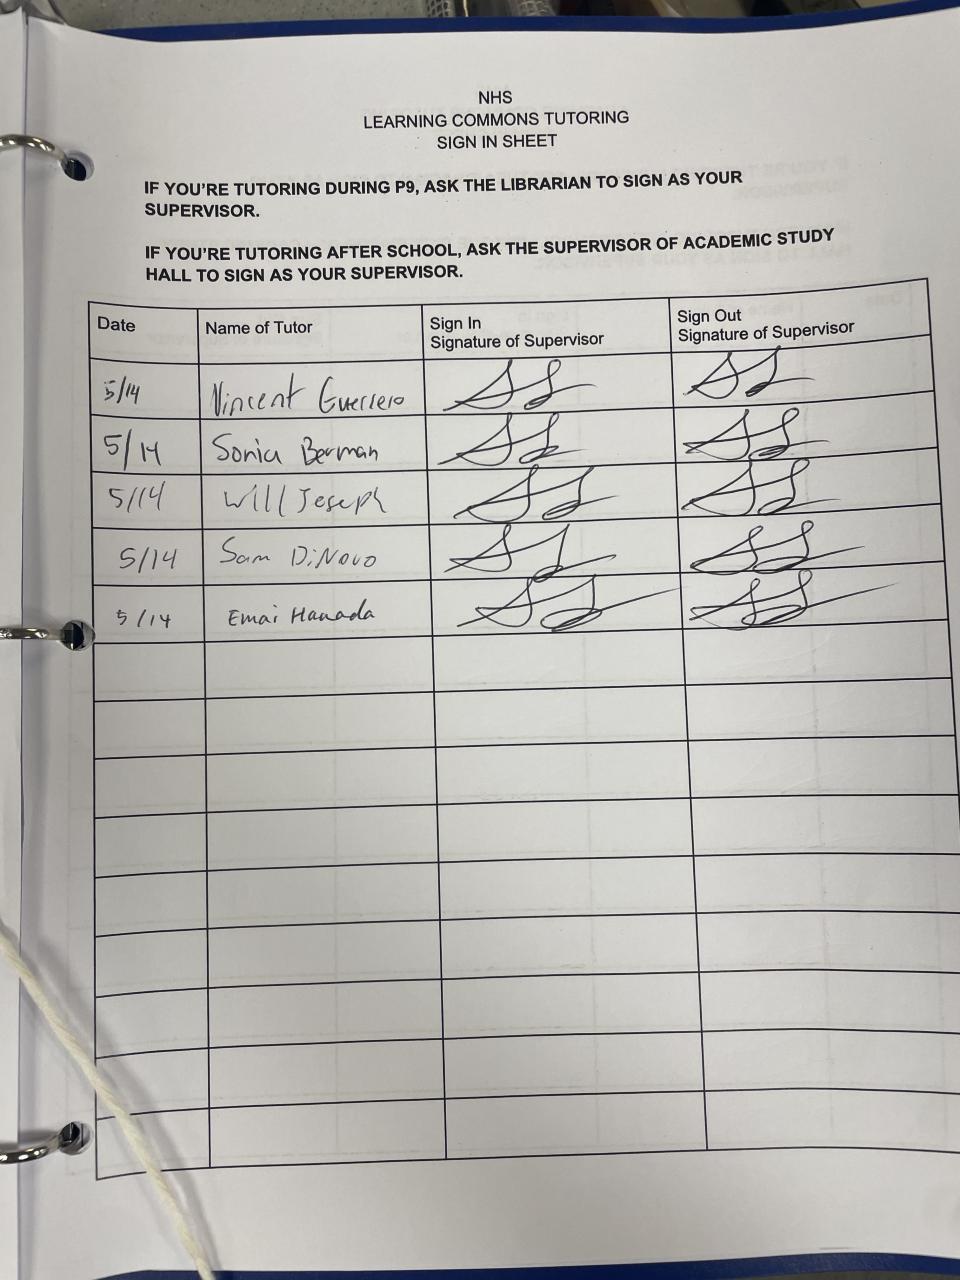 NHS
LEARNING COMMONS TUTORING
SIGN IN SHEET
IF YOU'RE TUTORING DURING P9, ASK THE LIBRARIAN TO SIGN AS YOUR
SUPERVISOR.
IF YOU'RE TUTORING AFTER SCHOOL, ASK THE SUPERVISOR OF ACADEMIC STUDY
HALL TO SIGN AS YOUR SUPERVISOR.
Date Name of Tutor Sign In Signature of Supervisor Sign Out Signature of Supervisor
5/14 Vincent Guerrero
5/14 Sonia Berman
5/14 Will Joseph
5/14 Sam DiNovo
5/14 Emai Hanada